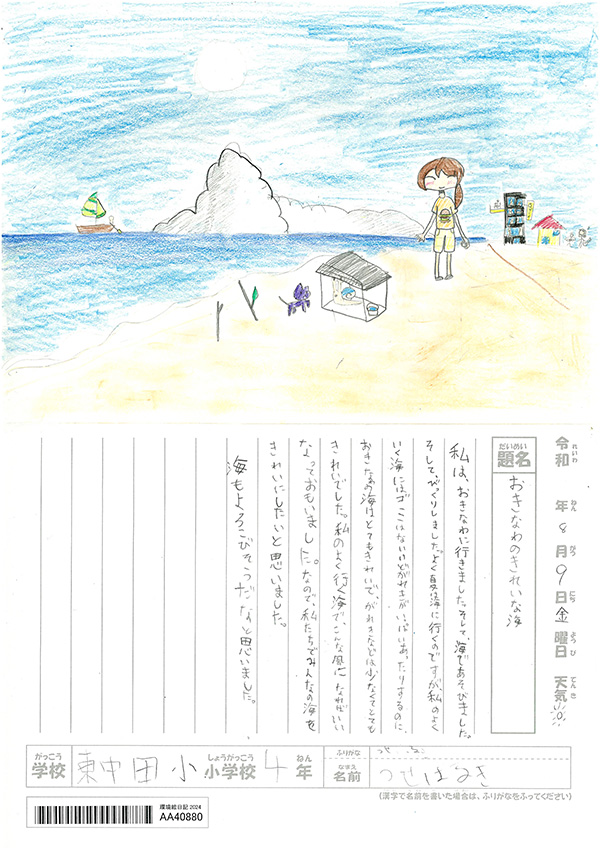 令和 年 8月 9日 金曜日 天気
れいわ ねん がつ にち ようび てんき
だいめい
題名
おきなわのきれいな海
私は、おきなわに行きました。そして、海であそびました。
そして、びっくりしました。よく夏は海に行くのですが、私のよく
いく海にはゴミはないけどがれきがいっぱいあったりするのに、
おきなわの海はとてもきれいで、がれきなどは少なくてとても
きれいでした。私のよく行く海で、こんな風になればいい
なっておもいました。なので、私たちでみんなの海を
きれいにしたいと思いました。
海もよろこびそうだなと思いました。
がっこう しょうがっこう ねん ふりがな
学校 東中田小 小学校 4年
なまえ
名前 つせはるき
(漢字で名前を書いた場合は、ふりがなをふってください)
環境絵日記 2024
AA40880